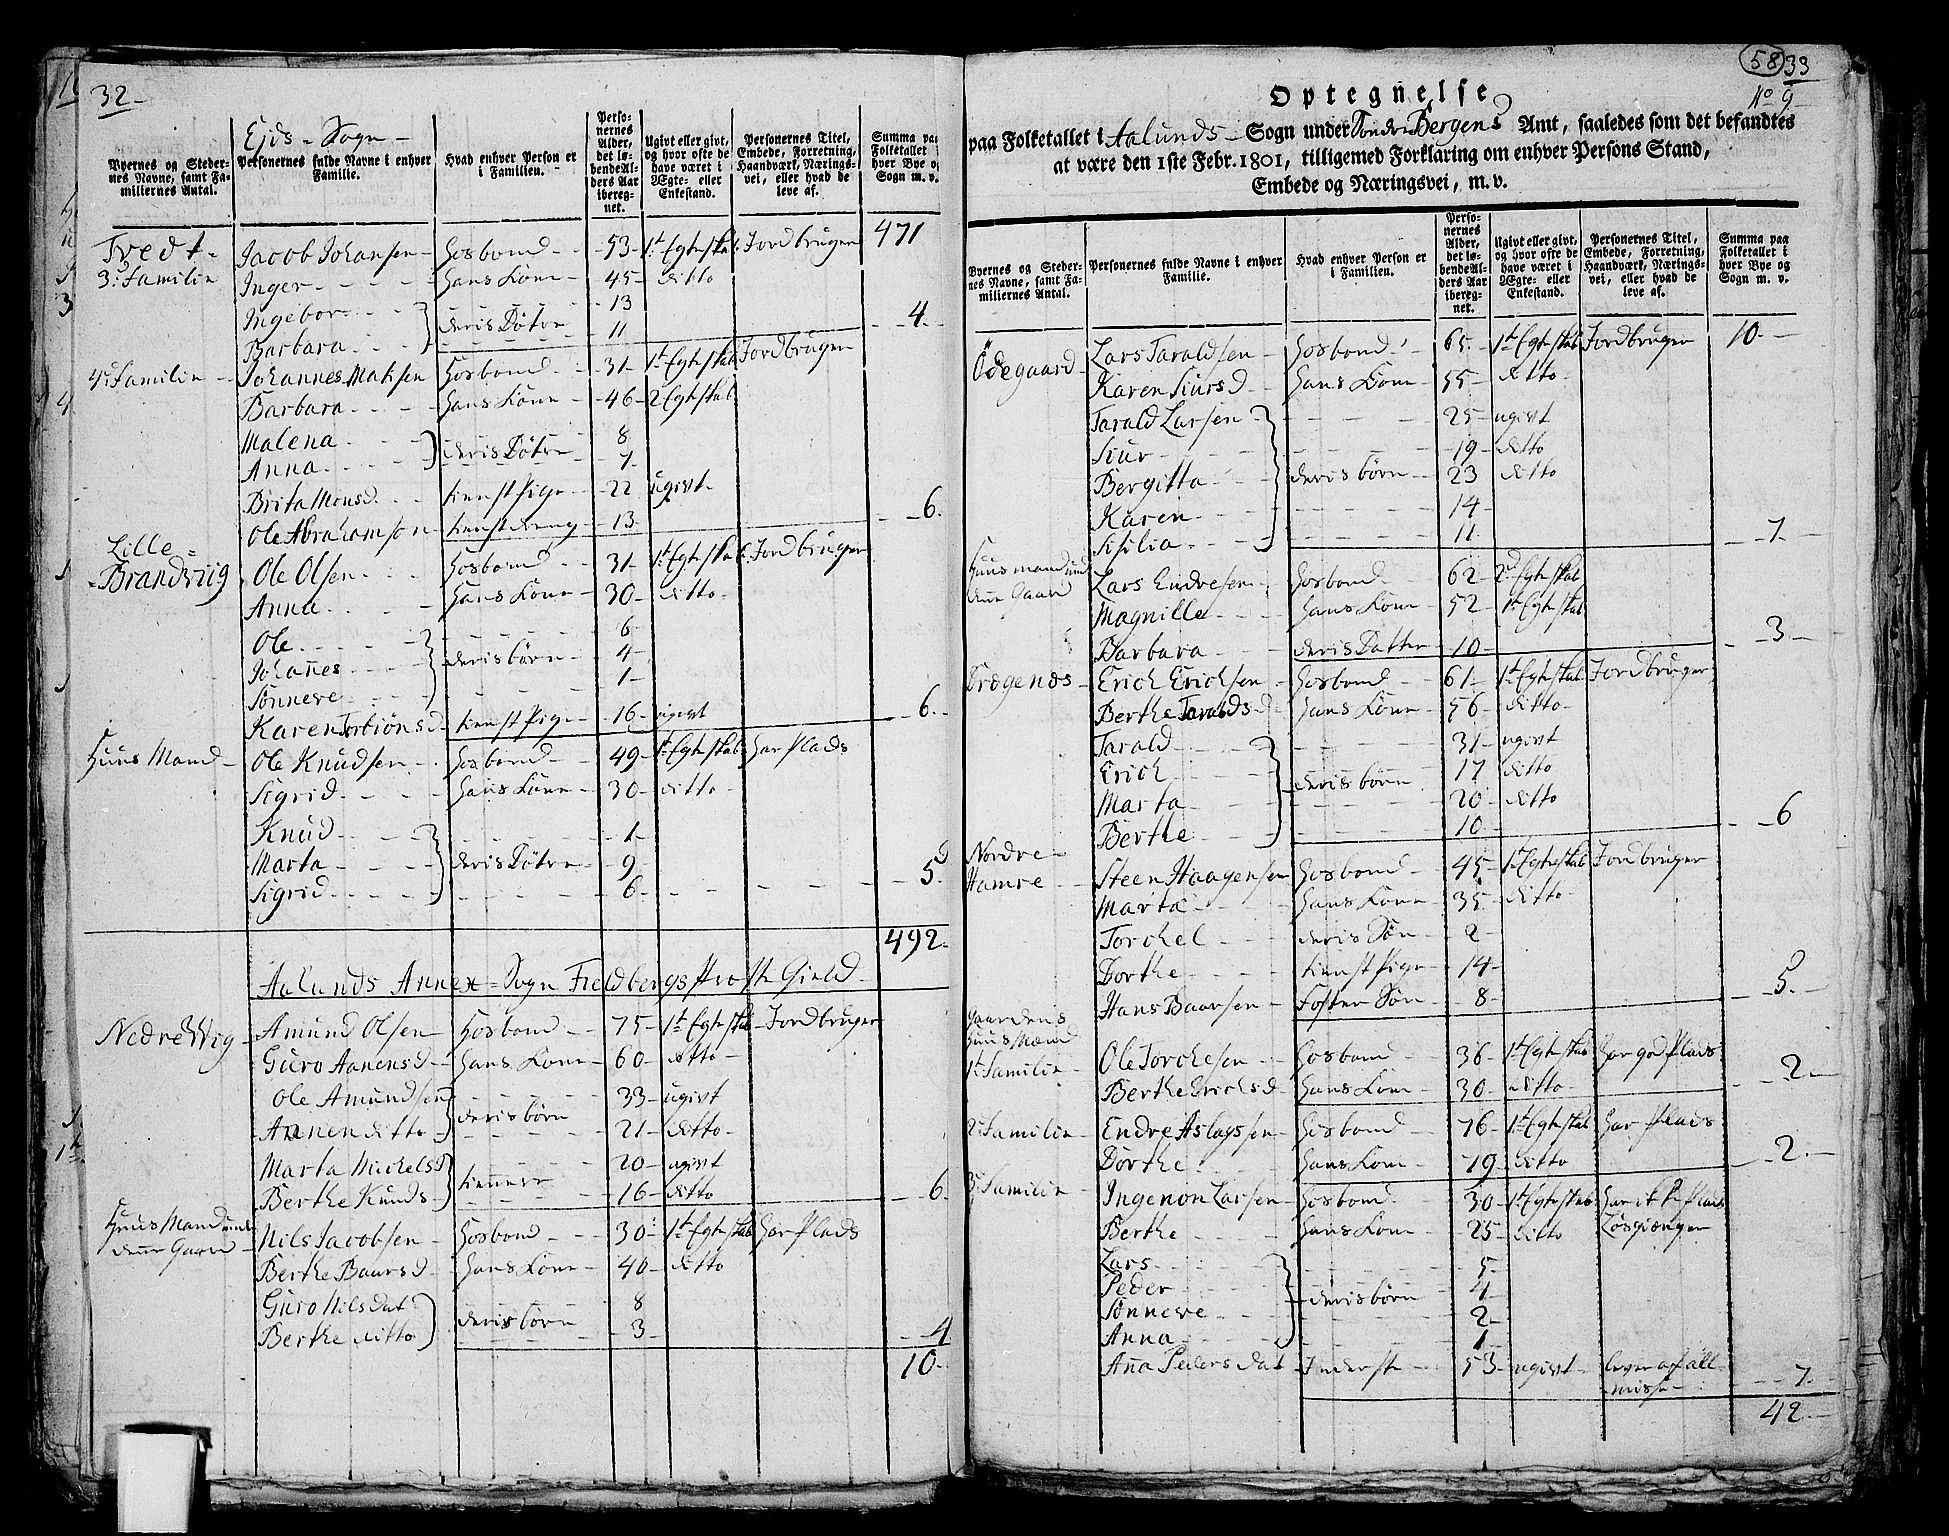 32
Ejds - Sogn
Byernes og Steder-
nes Navne, samt Fa-
miliernes Antal.
Personernes fulde Navne i enhver
Familie.
Hvad enhver Person er
i Familien.
Perso-
nernes
Alder,
det lø-
bende Al-
ders Aar
ibereg-
net.
Ugivt eller givt,
og hvor ofte de
have været i
Ægte- eller
Enkestand.
Personernes Titel,
Embede, Forretning,
Haandværk, Nærings-
vei, eller hvad de
leve af.
Summa paa
Folketallet i
hver Bye og
Sogn m. v.
Tvedt - Jacob Johansen - Hosbond - 53 - 1t Egteskab Jordbruger 471
3. Familie Inger - Hans Kone - 45 ditto
Ingebor - 13
deris Døtre
Barbara - 11 4.
4. Familie - Johannes Matsen Hosbond - 31 - 1t Egteskab Jordbruger
Barbara - Hans Kone - 46 - 2 Egteskab
Malena - 8
deris Døtre
Anna - 7
Brita Monsd. tienst Pige - 22 ugivt
Ole Abrahamson - tienst dreng - 13 6.
Lille -
Brandvig Ole Olsen Hosbond 31 - 1t Egteskab Jordbruger
Anna Hans Kone 30 ditto
Ole 6
Johannes deris børn 4
Sønneve 1
Karen Torbiönsd tienst Pige - 16 - ugivt 6.
Huus Mand - Ole Knudsen Hosbond - 49 - 1t Egteskab har Plads
Sigrid Hans Kone 30 ditto
Knud - 1
Marta - deris Døtre 9
Sigrid - 6 5.
492.
Aalunds Annex = Sogn Fieldbergs Præste Gield
Nedre Wig - Amund Olsen Hosbond 75 - 1t Egteskab - Jordbruger
Guro Aanensd - Hans Kone - 60 - ditto
Ole Amundsen 33 ugivt
deris børn
Aanen ditto 21 ditto
Marta Michelsd 20 ugivt
tiennere
Berthe Knuds 16 ditto 6.
Huus Mand under
denne Gaard - Nils Jacobsen - Hosbond 30 - 1t Egteskab har Plads
Berthe Baarsd - Hans Kone 40 - ditto
Guro Nilsdat 8
deris børn
Berthe ditto 3 4
10
58 33
No 9
Optegnelse
paa Folketallet i Aalunds Sogn under Søndre Bergens Amt, saaledes som det befandtes
at være den 1ste Febr. 1801, tilligemed Forklaring om enhver Persons Stand,
Embede og Næringsvei, m. v.
Byernes og Steder-
nes Navne, samt Fa-
miliernes Antal.
Personernes fulde Navne i enhver
Familie.
Hvad enhver Person er
i Familien.
Perso-
nernes
Alder,
det lø-
bende Al-
ders Aar
ibereg-
net.
Ugivt eller givt,
og hvor ofte de
have været i
Ægte- eller
Enkestand.
Personernes Titel,
Embede, Forretning,
Haandværk, Nærings-
vei, eller hvad de
leve af.
Summa paa
Folketallet i
hver Bye og
Sogn m. v.
Ödegaard - Lars Taraldsen - Hosbond - 65 - 1t Egteskab Jordbruger 10
Karen Siursd - Hans Kone - 55 ditto
Tarald Larsen 25 ugivt
Siur 19 ditto
Bergitta deris børn 23 ditto
Karen 14
Sisilia 11 7
Huusmand und
denne Gaard Lars Endresen Hosbond 62 2d Egteskab
Magnille Hans Kone 52 1t Egteskab
Barbara deris Datter 10 3
Trøgenæs Erich Erichsen Hosbond 61 - 1t Egteskab Jordbruger
Berthe Taraldsd Hans Kone 56 ditto
Tarald 31 ugivt
Erich deris børn 17 ditto
Marta 20 ditto
Berthe 10 6
Nordre
Hamre - Steen Haagensen Hosbond 45 1t Egteskab Jordbruger
Martæ Hans Kone 35 ditto
Torchel deris Søn 2
Dorthe tienst Pige 14
Hans Baarsen Foster Søn 8 5
Gaardens
Huus Mænd
1t Familie Ole Torchesen Hosbond 36 1t Egteskab har god Plads
Berthe Erichsd Hans Kone 30 ditto 2
2. Familie Endre Aslagsen Hosbond 76 1t Egteskab har Plads
Dorthe Hans Kone 79 ditto 2
3. Familie Ingemon Larsen Hosbond 30 1t Egteskab Plads
Berthe Hans Kone 25 ditto Løsgiænger
Lars 5
Peder deris børn 4
Sønneve 2
Anna 1
Ana Peders dat Inderst 53 ugivt lever af all-
misse 7
42